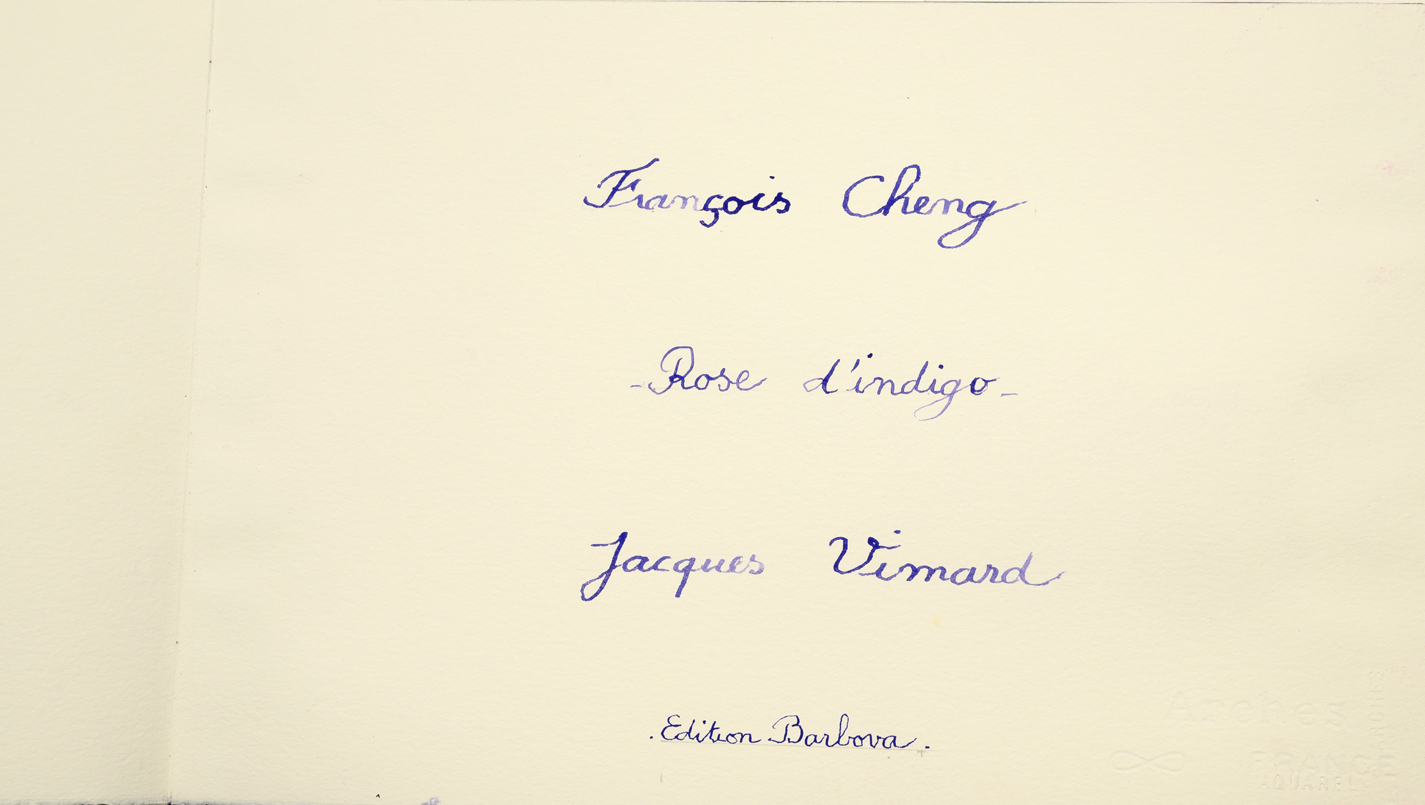 François Cheng
-Rose d'indigo-
Jacques Vimard
.Edition Barbova.
Arches
FRANCE
AQUARELLE